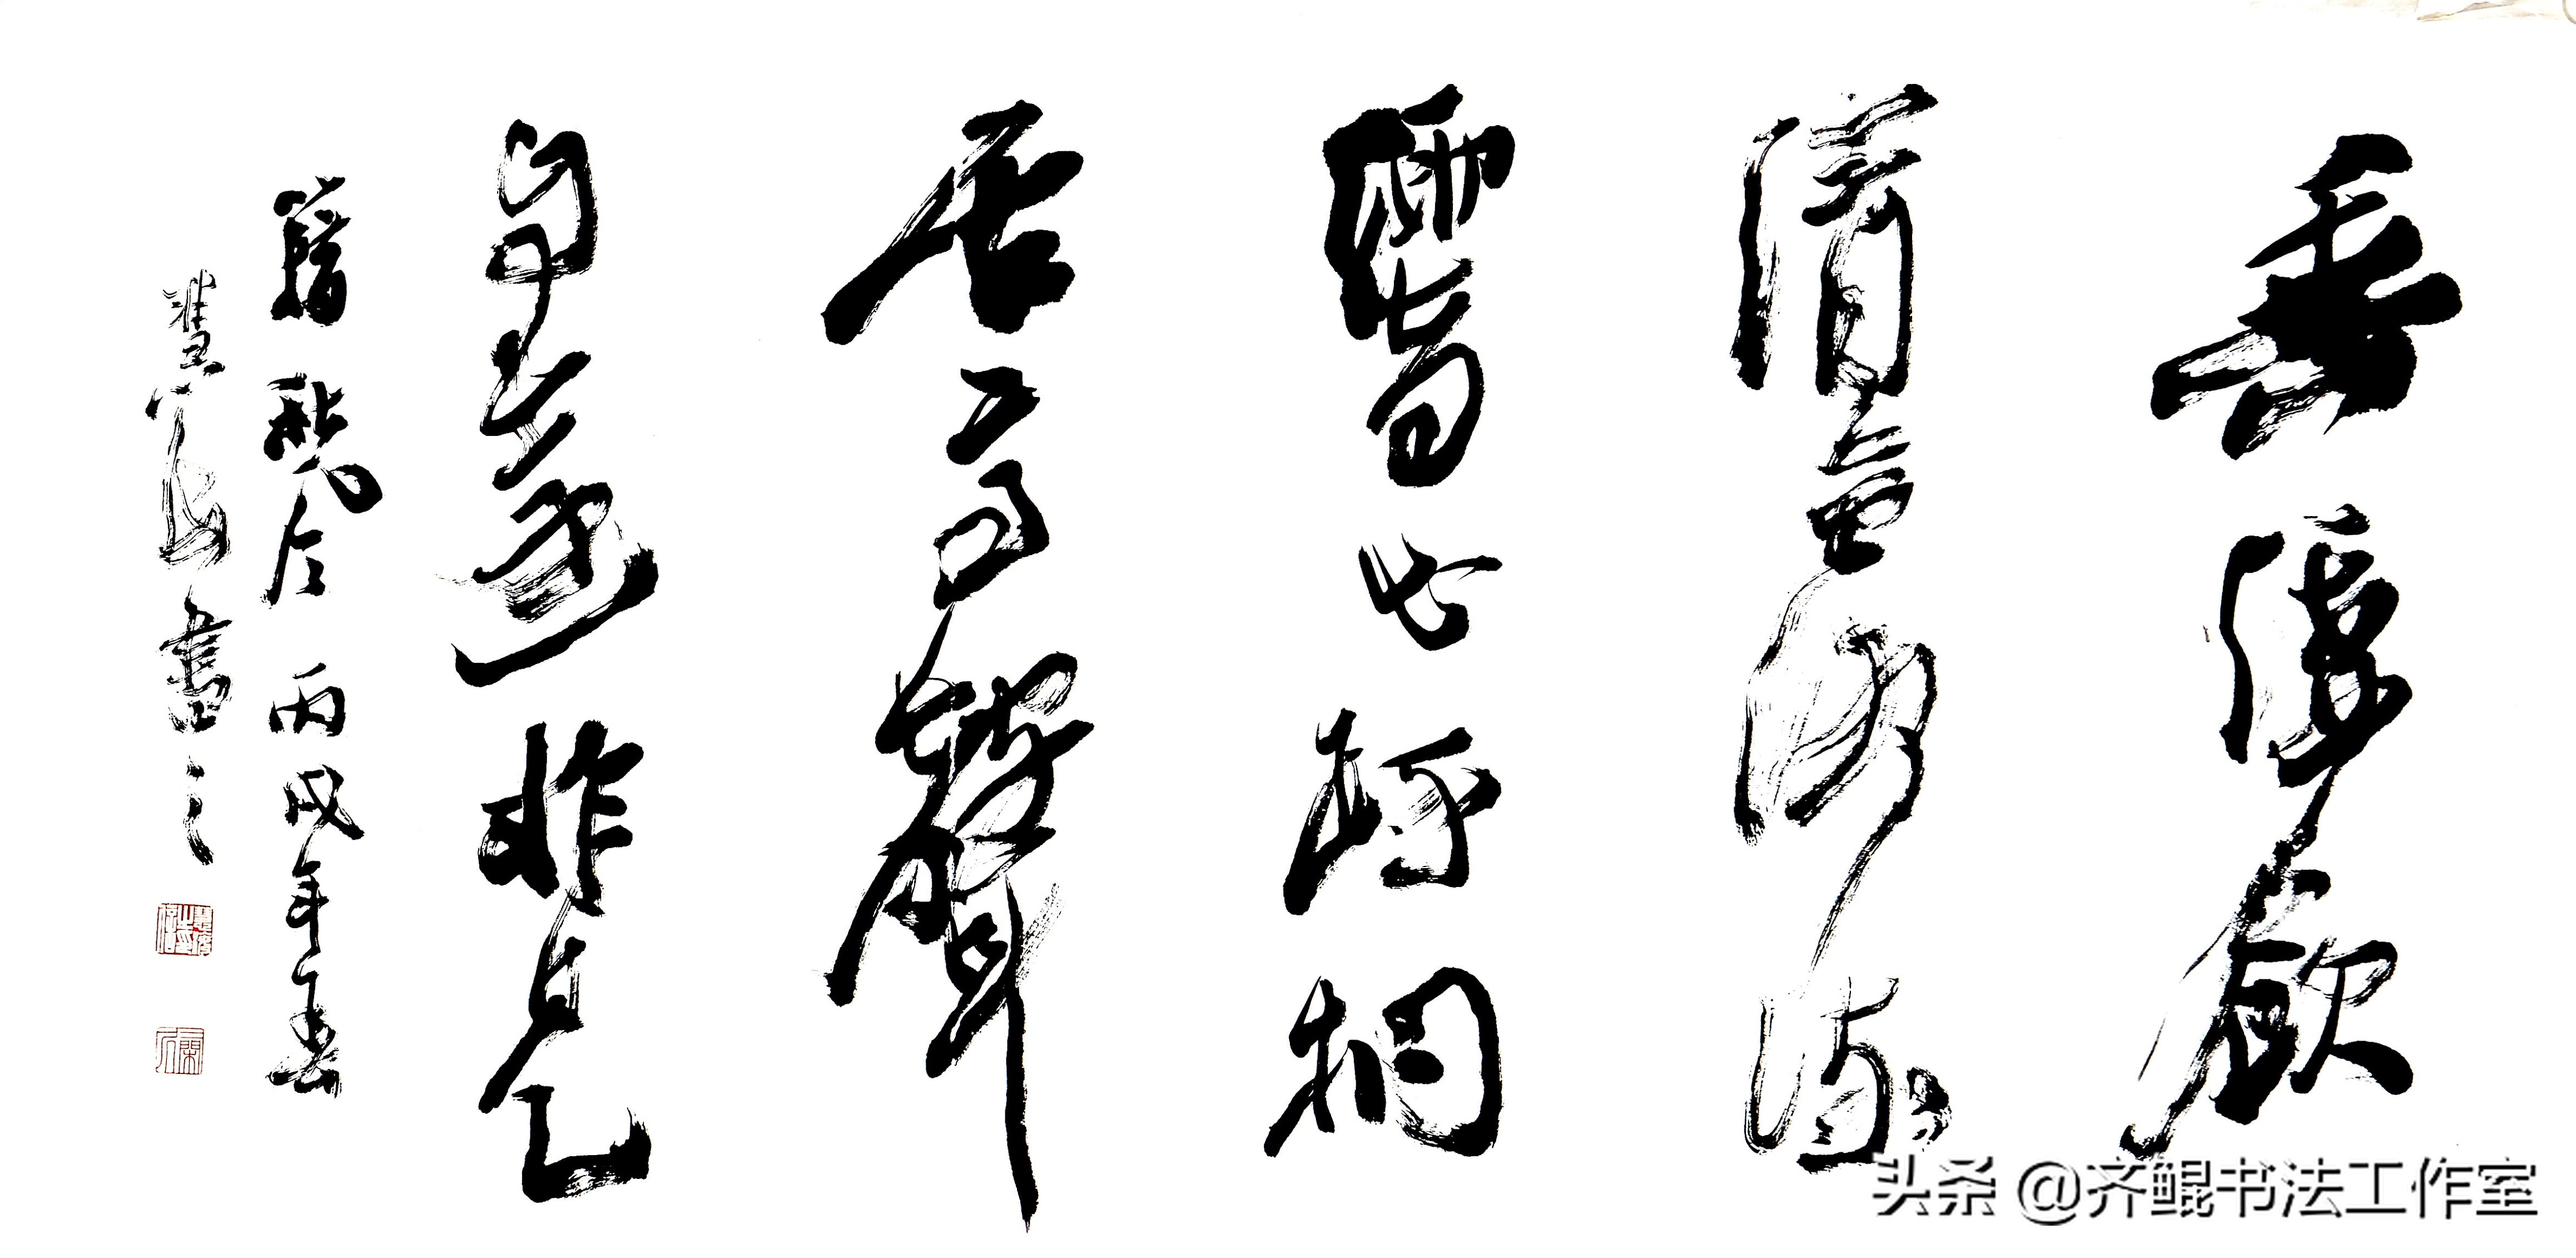 垂緌飲
清露流
響出疏桐
居高聲
自遠非是
藉秋風丙戌年春
雙海書之
头条 @齐鲲书法工作室